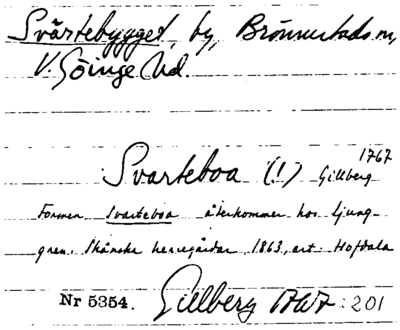 Svärtebygget, by, Brönnestads sn,
V. Göinge hd.
1767
Svarteboa (!) Gillberg
Formen Svarteboa återkommer hos Ljung-
gren. Skånska herregårdar, 1863, art. Hofdala
Nr 5354. Gillberg 1767: 201